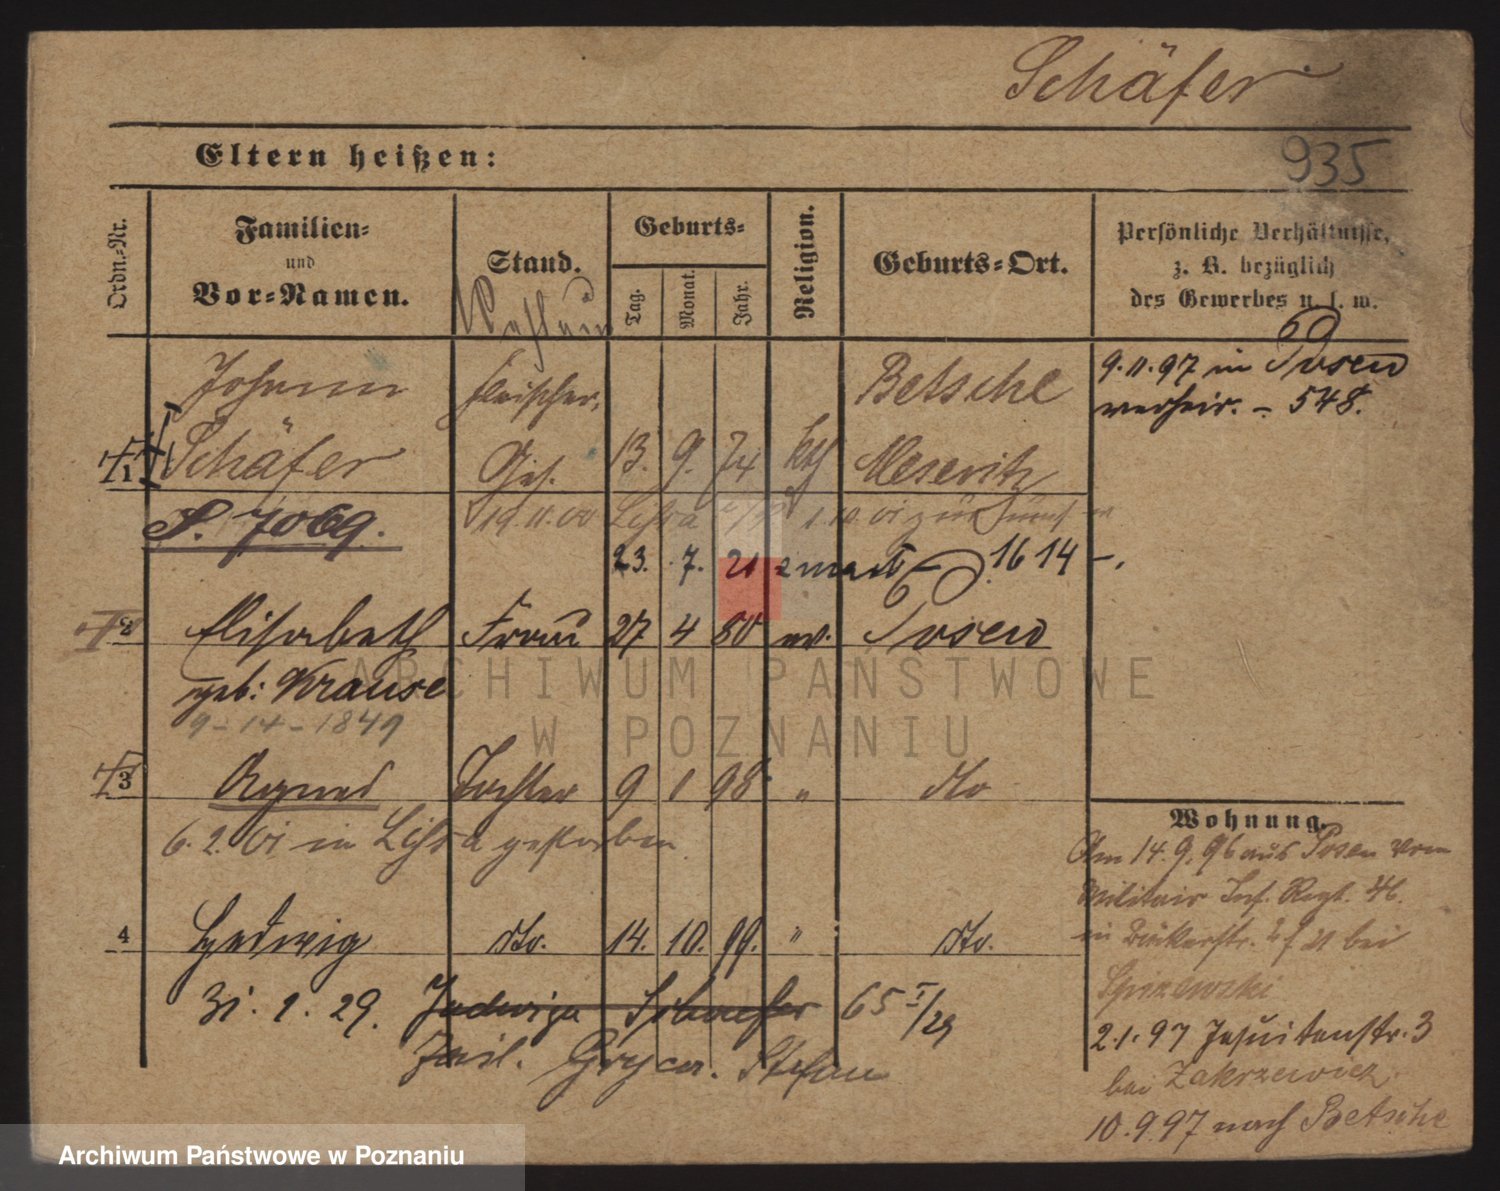 Schäfer.
Eltern heißen:
935
Ordn.-Nr.
Familien-
und
Vor-Namen.
Stand.
Geburts-
Tag.
Monat.
Jahr.
Religion.
Geburts-Ort.
Persönliche Verhältnisse,
z. B. bezüglich
des Gewerbes u. s. w.
Johann Fleischer Betsche
1 Schäfer Ges. 13. 9. 74 kth Meseritz
9. 11. 97 in Posen
verheir. - 548.
S. 7069.
23. 7. 21 1614 -.
2 Elisabeth Frau 27 4 80 ev. Posen
geb: Krause
9 - 14 - 1849
3 Agnes Tochter 9 1 98 " dto
6. 2. 01 in Lissa gestorben.
4 Hedwig dto. 14. 10. 99. " dto.
31. 1. 29. Jadwiga Schaefer 65 I/29
Gryca. Stefan
Wohnung.
Am 14. 9. 96 aus Posen vom
Militair Inf. Regt. 46.
in Bäckerstr. bei
2. 1. 97 Jesuitenstr. 3
bei Zakrzewicz.
10. 9 97 nach Betsche
ARCHIWUM PAŃSTWOWE
W POZNANIU
Archiwum Państwowe w Poznaniu